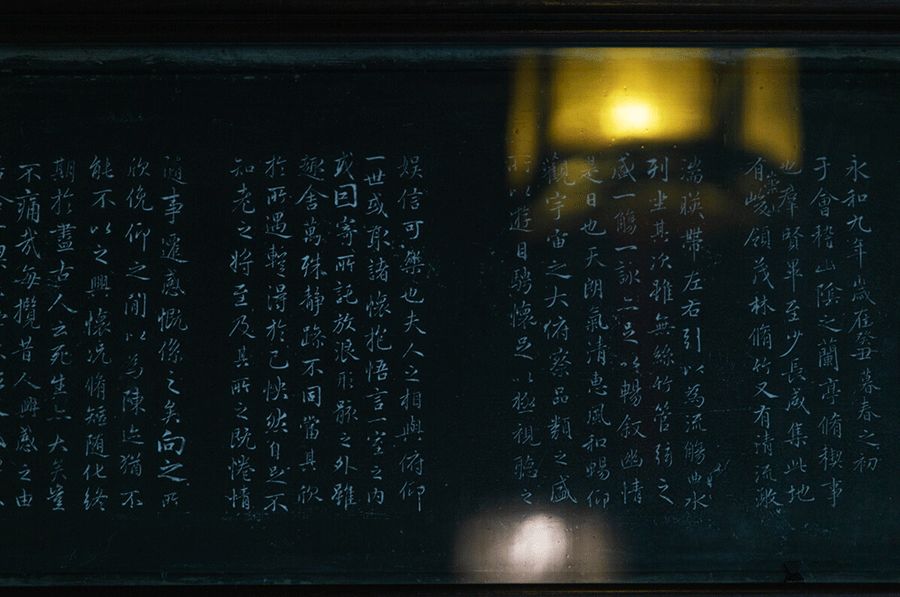 永和九年歲在癸丑暮春之初
于會稽山陰之蘭亭脩稧事
也羣賢畢至少長咸集此地
有崇山峻領茂林脩竹又有清流激
湍暎帶左右引以為流觴曲水
列坐其次雖無絲竹管弦之
盛一觴一詠亦足以暢叙幽情
是日也天朗氣清惠風和暢仰
觀宇宙之大俯察品類之盛
所以遊目騁懷足以極視聽之
娛信可樂也夫人之相與俯仰
一世或取諸懷抱悟言一室之內
或因寄所託放浪形骸之外雖
趣舍萬殊靜躁不同當其欣
於所遇蹔得於己怏然自足不
知老之將至及其所之既惓情
隨事遷感慨係之矣向之所
欣俛仰之閒以為陳迹猶不
能不以之興懷況脩短隨化終
期於盡古人云死生亦大矣豈
不痛哉每攬昔人興感之由